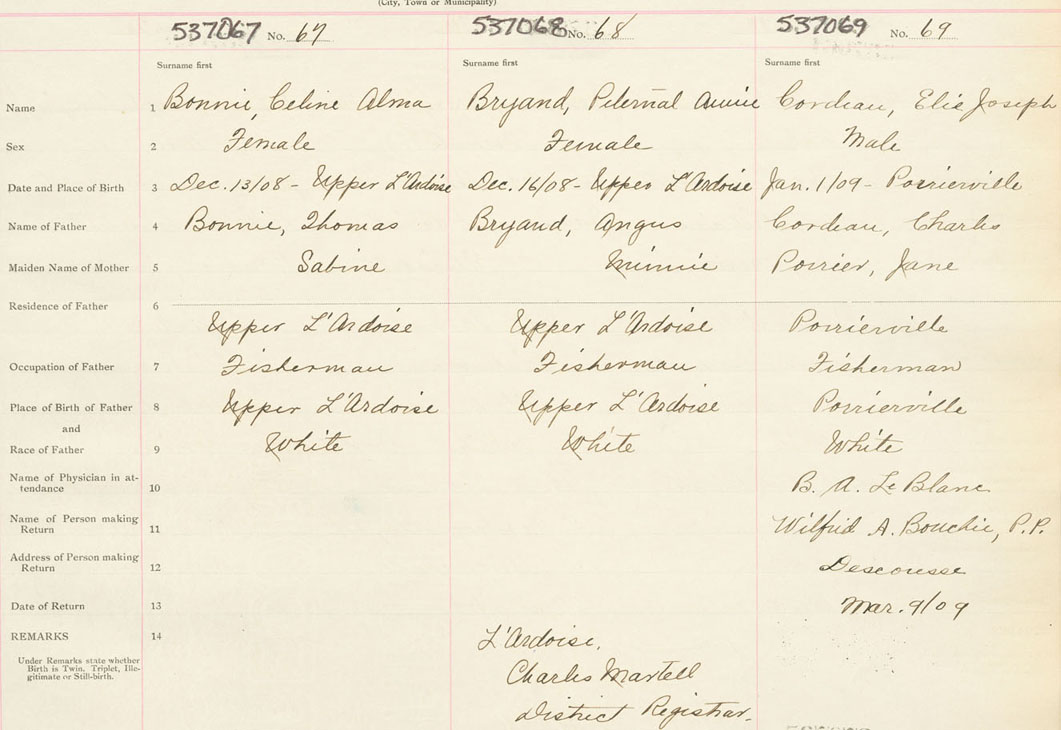 (City, Town or Municipality)
537067 No. 67 537068 No. 68 537069 No. 69
Surname first Surname first Surname first
Name 1 Bonnie, Celine Alma Bryand, Peternal Annie Cordeau, Elie Joseph
Sex 2 Female Female Male
Date and Place of Birth 3 Dec. 13/08 - Upper L'Ardoise Dec. 16/08 - Upper L'Ardoise Jan. 1/09 - Poirierville
Name of Father 4 Bonnie, Thomas Bryand, Angus Cordeau, Charles
Maiden Name of Mother 5 Sabine Minnie Poirier, Jane
Residence of Father 6
Upper L'Ardoise Upper L'Ardoise Poirierville
Occupation of Father 7 Fisherman Fisherman Fisherman
Place of Birth of Father 8 Upper L'Ardoise Upper L'Ardoise Poirierville
and
Race of Father 9 White White White
Name of Physician in at-
tendance 10 B. A. Le Blanc
Name of Person making
Return 11 Wilfrid A. Bouchie, P.P.
Address of Person making
Return 12 Descousse
Date of Return 13 Mar. 9/09
REMARKS 14 L'Ardoise,
Under Remarks state whether
Birth is Twin, Triplet, Ille-
gitimate or Still-birth.
Charles Martell
District Registrar.